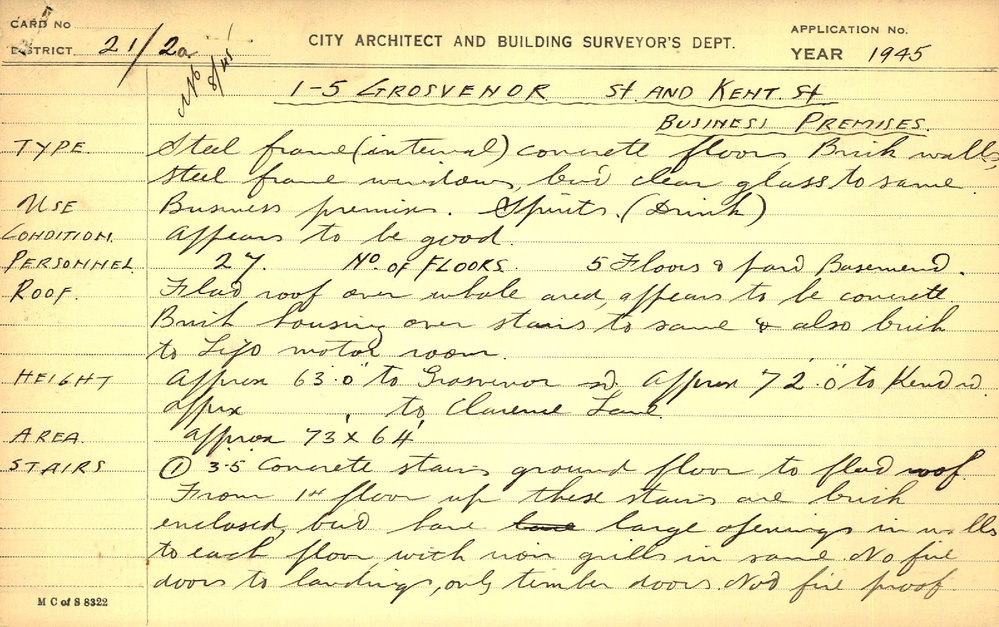 CARD NO
DISTRICT 21/2a
CITY ARCHITECT AND BUILDING SURVEYOR'S DEPT.
APPLICATION NO.
YEAR 1945
8/45
1-5 GROSVENOR St. AND KENT. St
BUSINESS PREMISES.
TYPE. Steel frame (internal) concrete floors Brick walls,
steel frame windows, but clear glass to same.
USE Business premises. Spirits. (Drink)
CONDITION. appears to be good.
PERSONNEL 27. No. OF FLOORS. 5 Floors & part Basement.
ROOF. Flat roof over whole area, appears to be concrete
Brick housing over stairs to same & also brick
to Lift motor room.
HEIGHT approx 63'.0" to Grosvenor st. approx 72'.0" to Kent st.
apprx ' to Clarence Lane.
AREA. approx 73' x 64'
STAIRS ① 3'.5 Concrete stairs ground floor to flat roof.
From 1st floor up these stairs are brick
enclosed, but have large openings in walls
to each floor with iron grills in same. No fire
doors to landings, only timber doors. Not fire proof.
M C of S 8322